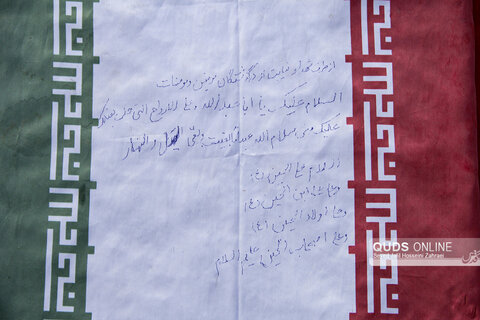 از طرف شهدا و نیابت از درگذشتگان مومنین و مومنات
السلام علیک یا اباعبدالله و علی الارواح التی حلت بفنائک
علیک منی سلام الله ما بقیت و بقی اللیل و النهار
السلام علی الحسین (ع)
و علی علی ابن الحسین (ع)
و علی اولاد الحسین (ع)
و علی اصحاب الحسین علیهم السلام
QUDS ONLINE
Seyed Jalil Hosseini Zahraei